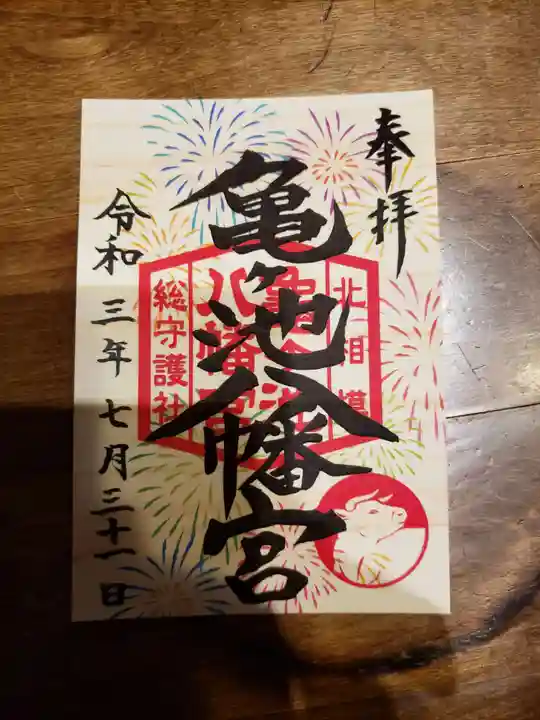 奉拝
亀ヶ池八幡宮
北相模
亀ヶ池
八幡宮
総守護社
令和三年七月三十一日